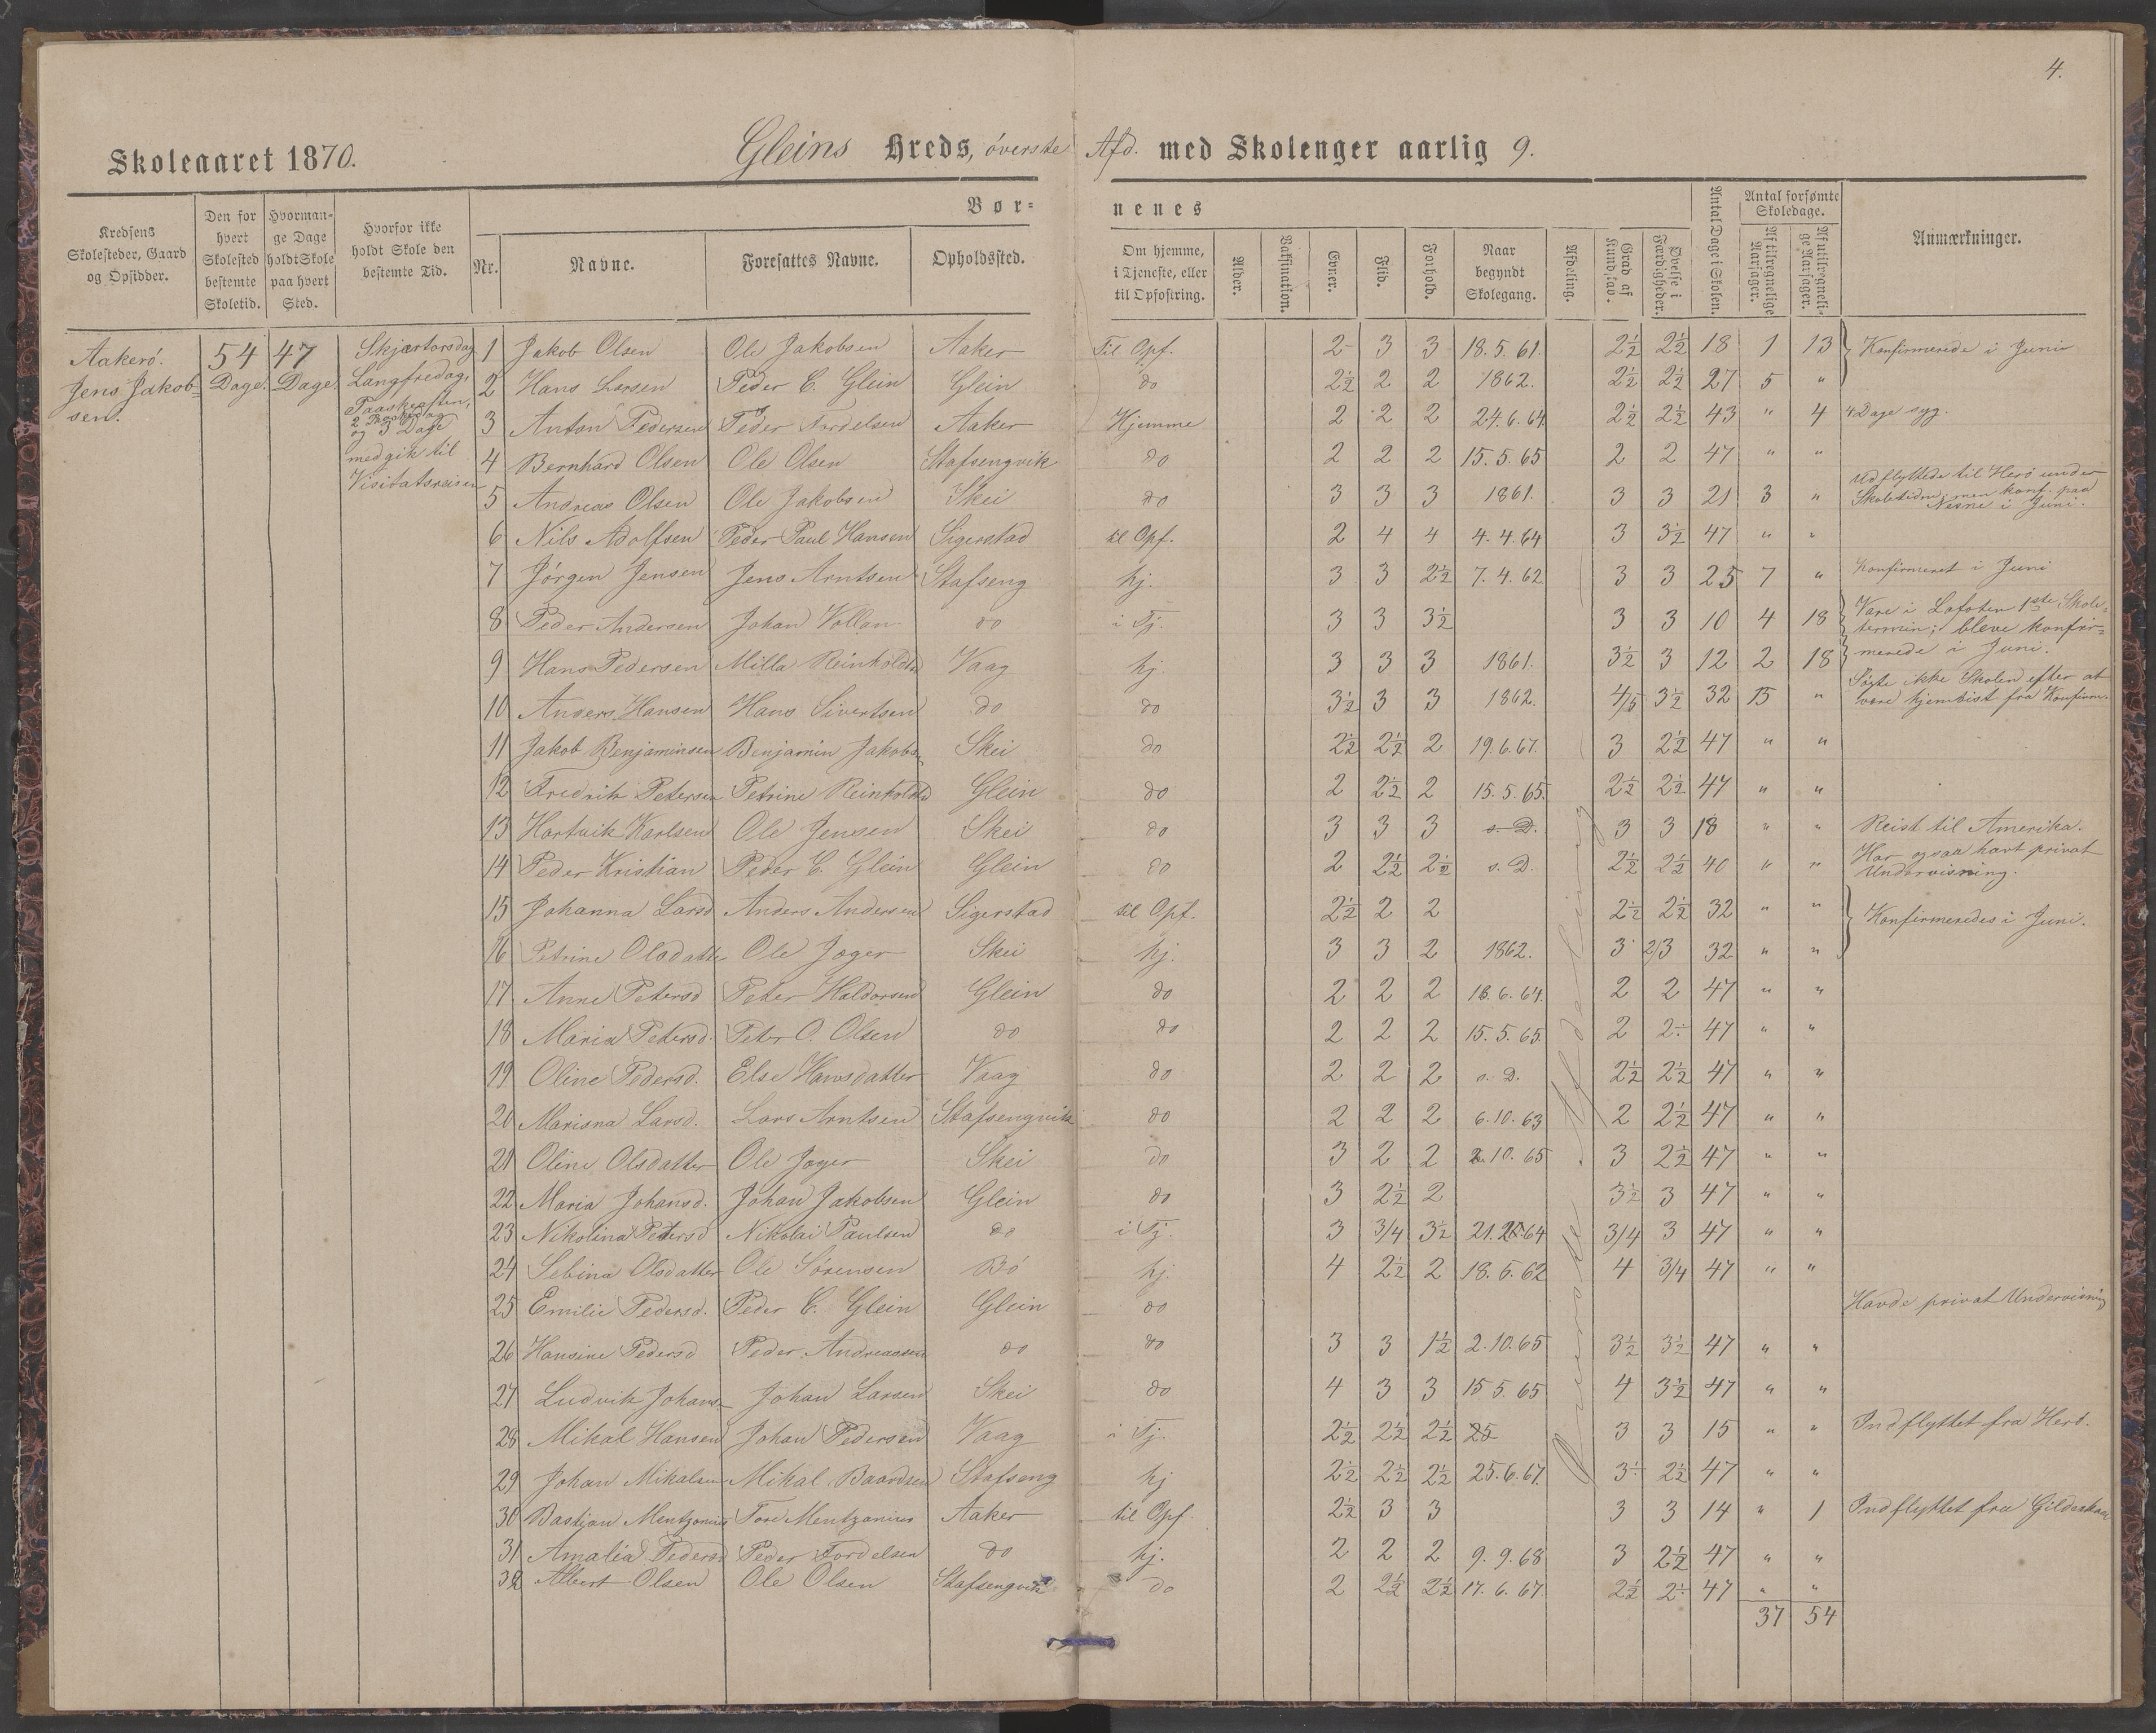 4.
Skoleaaret 1870.
Gleins Kreds, överste Afd. med Skolenger aarlig 9.
Kredsens Skolesteder, Gaard og Opsidder.
Den for hvert Skolested bestemte Skoletid.
Hvormange Dage holdt Skole paa hvert Sted.
Hvorfor ikke holdt Skole den bestemte Tid.
Bør- nenes
Nr. Navne. Foresattes Navne. Opholdssted.
Om hjemme, i Tjeneste, eller til Opfostring.
Alder. Vaksination. Evner. Flid. Forhold.
Naar begyndt Skolegang.
Afdeling. Grad af Kundskab. Øvelse i Færdigheder. Antal Dage i Skolen.
Antal forsømte Skoledage.
Af tilregnelige Aarsager. Af utilregnelige Aarsager.
Anmærkninger.
Aakerö.
Jens Jakob-
sen.
54 Dage.
47 Dage
Skjærtorsdag
Langfredag,
Paaskeaften,
2 Paaskedag
og 3 Dage
medgik til
Visitatsreisen
Qvinnende Afdeling
1 Jakob Olsen Ole Jakobsen Aaker Til Opf. 2 3 3 18.5.61. 2½ 2½ 18 1 13 Konfirmerede i Juni
2 Hans Larsen Peder C. Glein Glein do 2½ 2 2 1862. 2½ 2½ 27 5 "
3 Anton Pedersen Peder Tordelsen Aaker Hjemme 2 2 2 24.6.64 2½ 2½ 43 " 4 4 Dage syg.
4 Bernhard Olsen Ole Olsen Stafsengvik do 2 2 2 15.5.65 2 2 47 " "
5 Andreas Olsen Ole Jakobsen Skei do 3 3 3 1861. 3 3 21 3 " Udflyttede til Herö under Skoletiden; men konf. paa Nesne i Juni.
6 Nils Adolfsen Peder Paul Hansen Sigerstad til Opf. 2 4 4 4.4.64 3 3½ 47 " "
7 Jörgen Jensen Jens Arntsen Stafseng hj. 3 3 2½ 7.4.62 3 3 25 7 " Konfirmeret i Juni
8 Peder Andersen Johan Vollan do i Tj. 3 3 3½ 3 3 10 4 18 Vare i Lofoten 1ste Skole-
termin; bleve konfir-
9 Hans Pedersen Milla Reinholdtsd Vaag hj. 3 3 3 1861. 3½ 3 12 2 18 merede i Juni.
10 Anders Hansen Hans Sivertsen do do 3½ 3 3 1862. 4/5 3½ 32 15 " Søgte ikke Skolen efter at være hjemvist fra Konfirm.
11 Jakob Benjaminsen Benjamin Jakobs. Skei do 2½ 2½ 2 19.6.67. 3 2½ 47 " "
12 Fredrik Petersen Petrine Reinholdtsd Glein do 2 2½ 2 15.5.65. 2½ 2½ 47 " "
13 Hartvik Karlsen Ole Jensen Skei do 3 3 3 s. D. 3 3 18 " " Reist til Amerika.
14 Peder Kristian Peder C. Glein Glein do 2 2½ 2½ s. D. 2½ 2½ 40 " " Har ogsaa havt privat Undervisning.
15 Johanna Larsd Anders Andersen Sigerstad til Opf. 2½ 2 2 2½ 2½ 32 " " Konfirmeredes i Juni.
16 Petrine Olsdatte Ole Jæger Skei hj. 3 3 2 1862. 3 2/3 32 " "
17 Anne Petersd Peter Haldorsen Glein do 2 2 2 18.6.64. 2 2 47 " "
18 Maria Petersd. Peter O. Olsen do do 2 2 2 15.5.65. 2 2 47 " "
19 Oline Pedersd. Else Hansdatter Vaag do 2 2 2 s. D. 2½ 2½ 47 " "
20 Mariana Larsd. Lars Arntsen Stafsengvik do 2 2 2 6.10.63 2 2½ 47 " "
21 Oline Olsdatter Ole Jæger Skei do 3 2 2 2.10.65 3 2½ 47 " "
22 Maria Johansd. Johan Jakobsen Glein do 3 2½ 2 3½ 3 47 " "
23 Nikolina Petersd Nikolai Paulsen do i Tj. 3 3/4 3½ 3/4 3 47 " "
24 Sebina Olsdatter Ole Sörensen Bö hj. 4 2½ 2 18.6.62 4 3/4 47 " "
25 Emilie Pedersd. Peder C. Glein Glein do Havde privat Undervisning
26 Hansine Pedersd Peder Andreassen do do 3 3 1½ 2.10.65 3½ 3½ 47 " "
27 Ludvik Johans. Johan Larsen Skei do 4 3 3 15.5.65 4 3½ 47 " "
28 Mikal Hansen Johan Pedersen Vaag i Tj. 2½ 2½ 2½ 25 3 3 15 " " Indflyttet fra Herö.
29 Johan Mikalsen Mikal Baardsen Stafseng hj 2½ 2½ 2½ 25.6.67. 3 2½ 47 " "
30 Bastian Mentzonius Tore Mentzonius Aaker til Opf. 2½ 3 3 3 3 14 " 1 Indflyttet fra Gildeskaal
31 Amalia Pedersd Peder Tordelsen do hj. 2 2 2 9.9.68 3 2½ 47 " "
32 Albert Olsen Ole Olsen Stafsengvik do 2 2½ 2½ 17.6.67. 2½ 2 47 " "
37 54